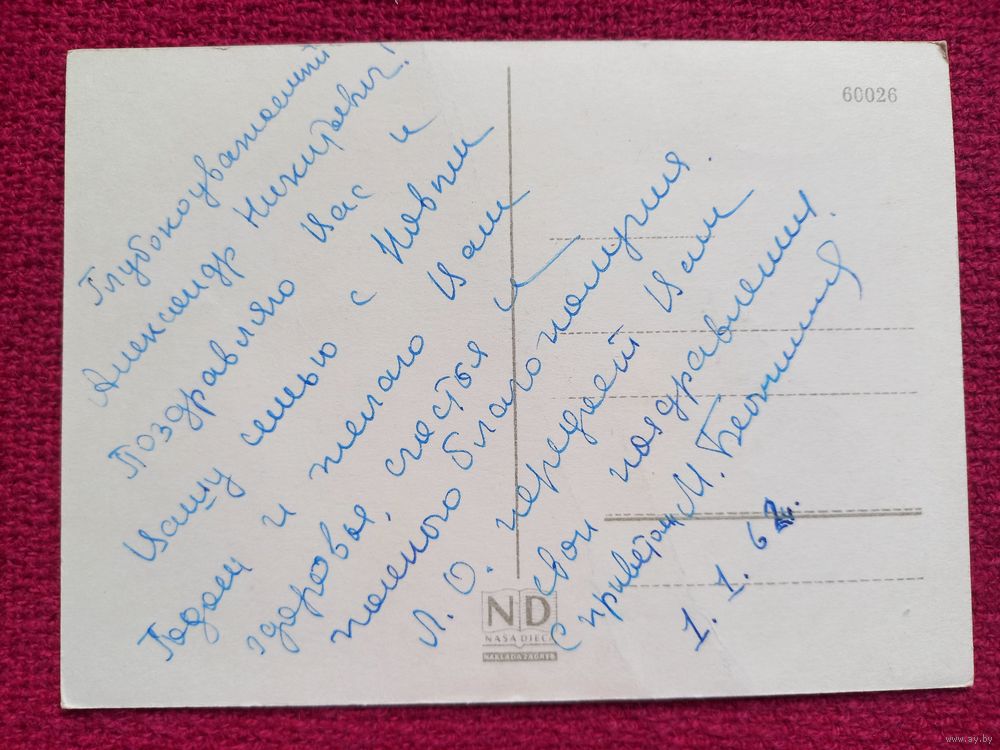 Глубокоуважаемый
Александр Никитович!
Поздравляю Вас и
Вашу семью с Новым
Годом и желаю Вам
здоровья, счастья и
полного благополучия.
Л. О. передаёт Вам
свои поздравления.
С приветом М.
1. 1. 62.
60026
ND
NAŠA DJECA
NAKLADA ZAGREB
www.ay.by